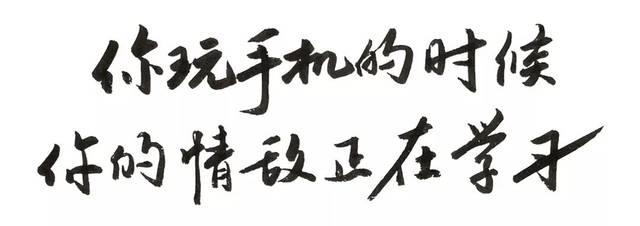 你玩手机的时候
你的情敌正在学习